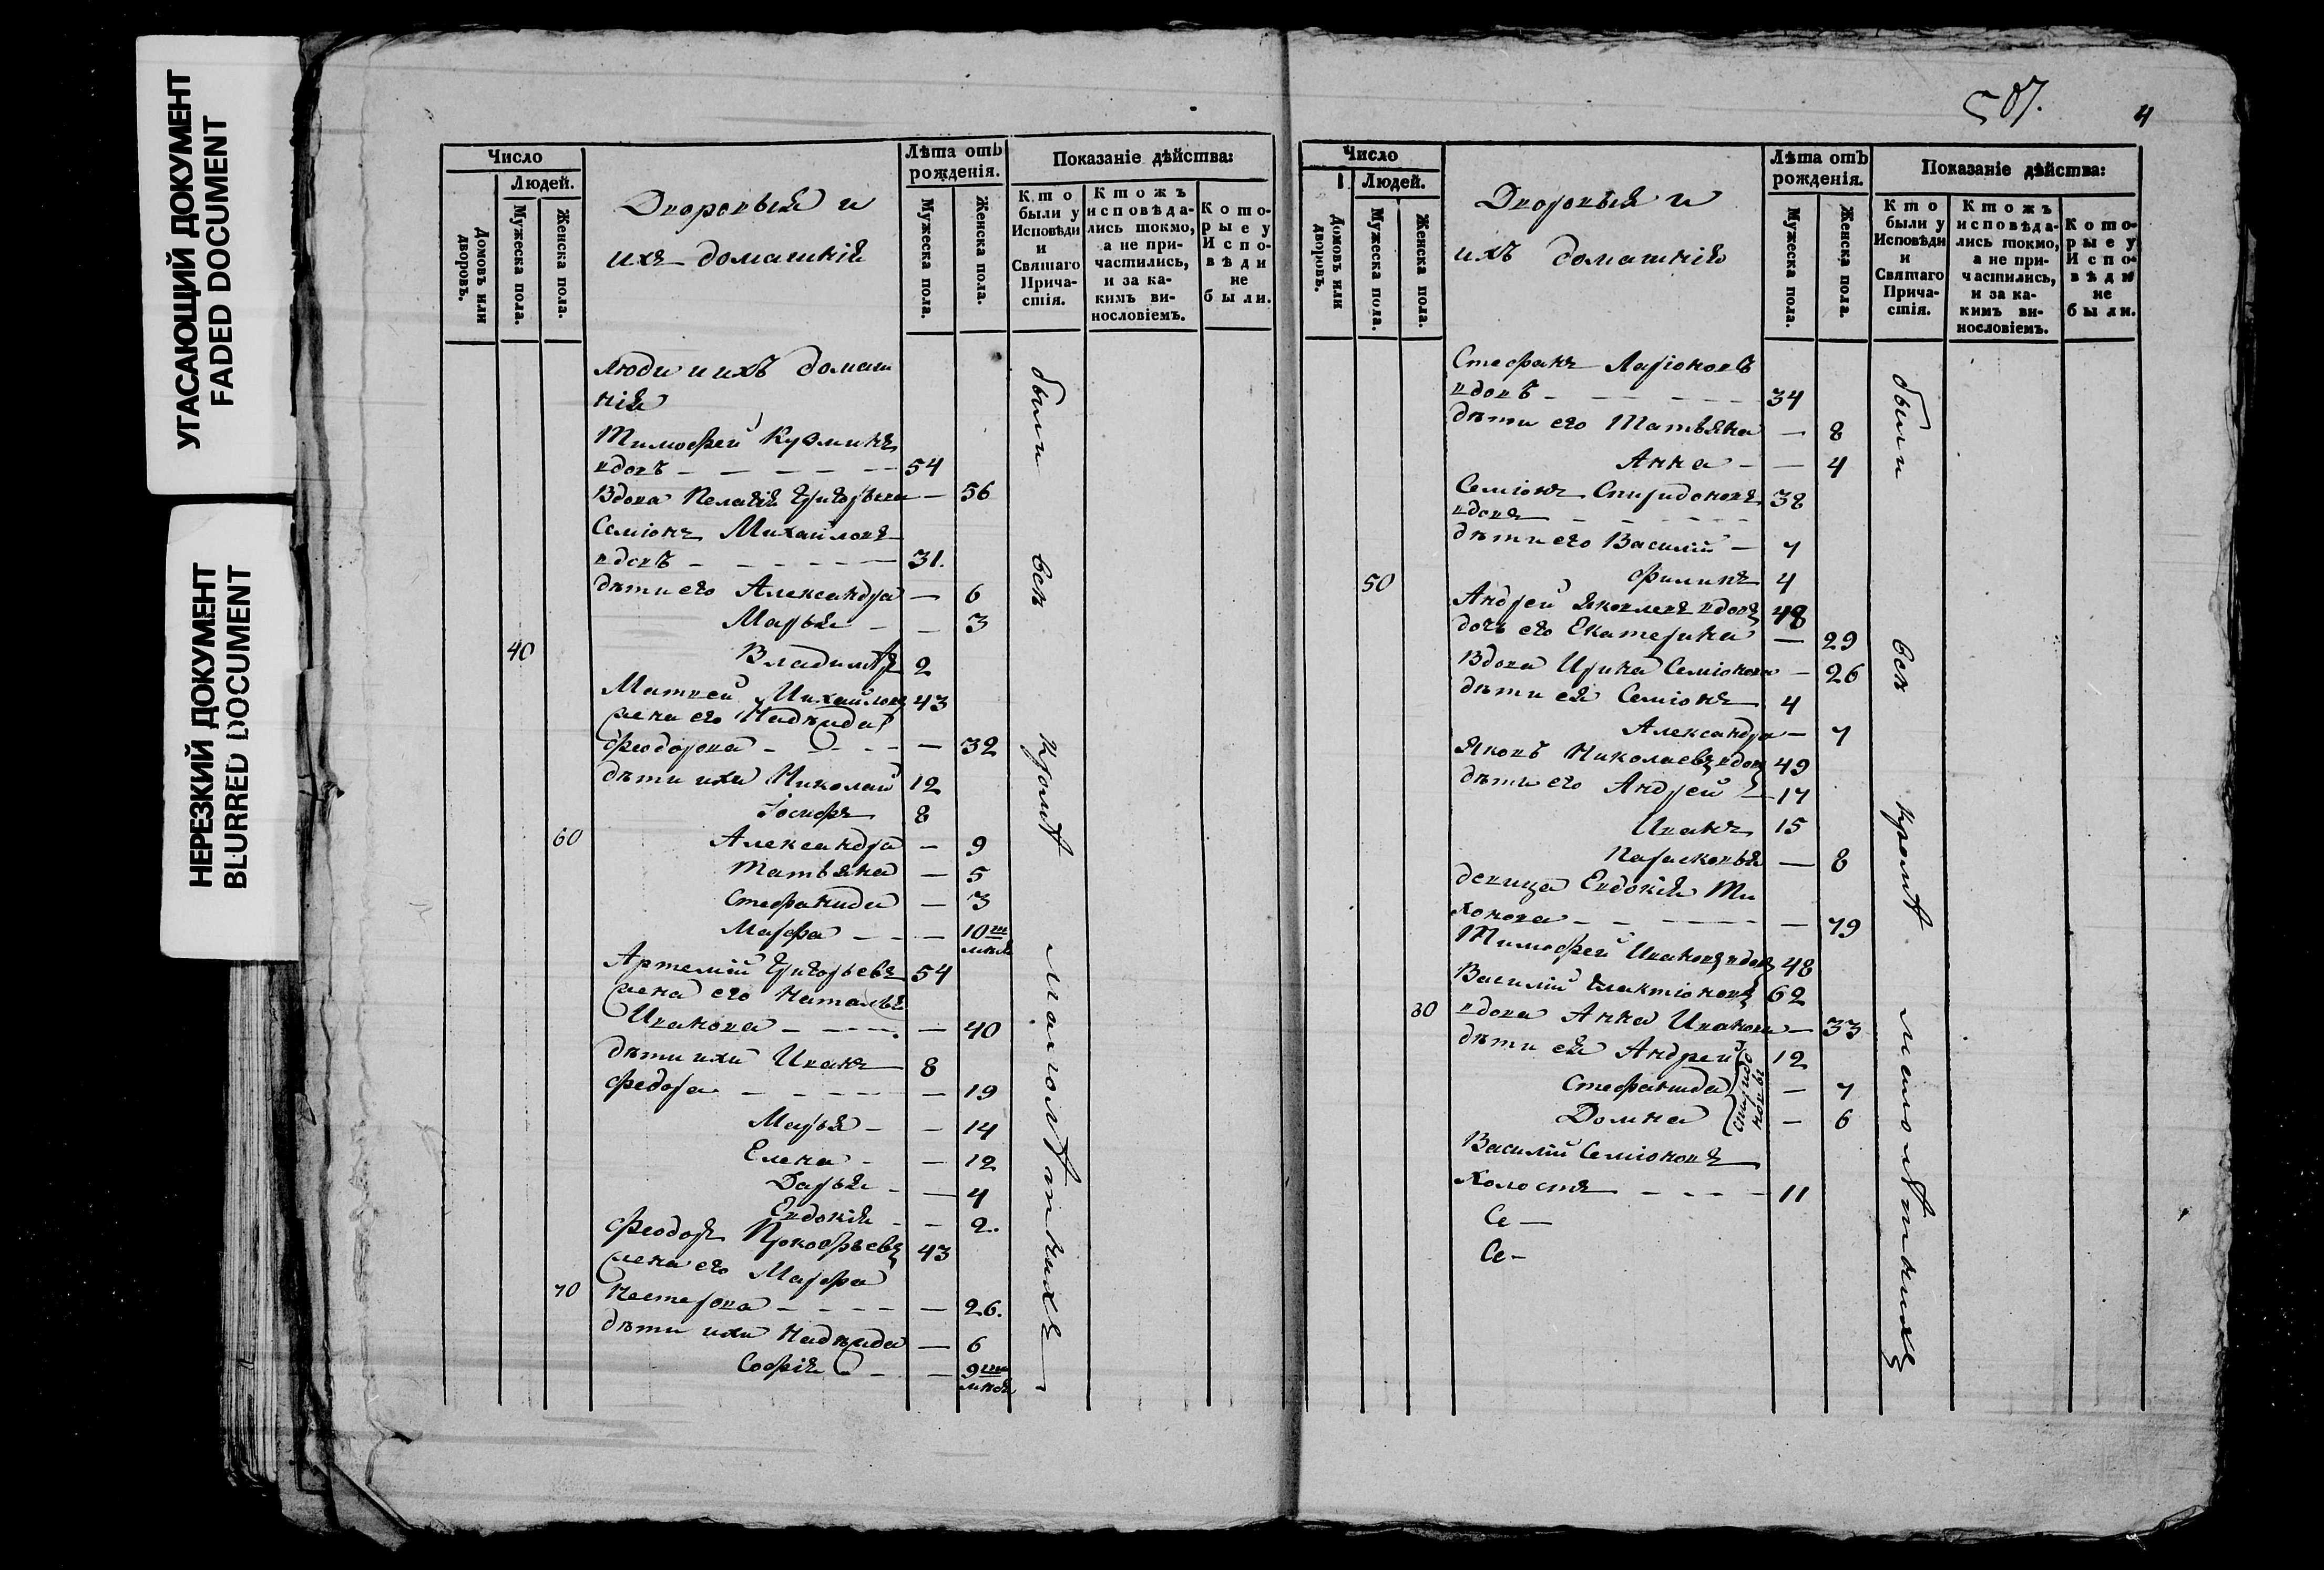 УГАСАЮЩИЙ ДОКУМЕНТ
FADED DOCUMENT
НЕРЕЗКИЙ ДОКУМЕНТ
BLURRED DOCUMENT
Число
Людей.
Домовъ или дворовъ.
Мужеска пола.
Женска пола.
Дворовыя и
ихъ домашнія
Лѣта отъ рожденія.
Мужеска пола.
Женска пола.
Показаніе дѣйства:
Кто были у Исповѣди и Святаго Причастія.
Ктожъ исповѣдались токмо, а не причастились, и за какимъ винословіемъ.
Которые у Исповѣди не были.
люди и ихъ домаш
нія
Тимофей Кузминъ
вдовъ - - - - - 54
Вдова Пелагія Григорьева - 56
Семіонъ Михайловъ
вдовъ - - - - - 31.
дѣти его Александра - 6
Марья - - 3
40 Владиміръ 2
Матвей Михайловъ 43
жена его Надежда
Феодорова - - - - - 32
дѣти ихъ Николай 12
Іосифъ 8
60 Александра - 9
Татьяна - 5
Стефанида - 3
Марфа - - - 10ти
мѣся
Артемій Григорьевъ 54
жена его Наталья
Иванова - - - - - 40
дѣти ихъ Иванъ 8
Федора - - - - - 19
Марья - - 14
Елена - - 12
Дарья - - 4
Евдокія - - 2.
Феодоръ Прокофьевъ 43
жена его Марфа
70 Нестерова - - - - - 26.
дѣти ихъ Надежда - 6
Софія - - 9ти
мѣся
были всѣ кромѣ малолѣтнихъ
507. 4
Число
Людей.
Домовъ или дворовъ.
Мужеска пола.
Женска пола.
Дворовыя и
ихъ домашнія
Лѣта отъ рожденія.
Мужеска пола.
Женска пола.
Показаніе дѣйства:
Кто были у Исповѣди и Святаго Причастія.
Ктожъ исповѣдались токмо, а не причастились, и за какимъ винословіемъ.
Которые у Исповѣди не были.
Стефанъ Ларіоновъ
вдовъ - - - - - 34
дѣти его Татьяна - 8
Анна - - 4
Семіонъ Спиридоновъ 38
вдовъ - - - -
дѣти его Василій - 7
50 Филипъ 4
Андрей Яковлевъ вдовъ 48
дочь его Екатерина - 29
Вдова Ирина Семіонова - 26
дѣти ея Семіонъ 4
Александра - 7
Яковъ Николаевъ вдовъ 49
дѣти его Андрей - 17
Иванъ 15
Парасковья - 8
девица Евдокія Ти
хонова - - - - - 79
Тимофей Ивановъ вдовъ 48
Василій Галактіоновъ 62
80 вдова Анна Иванова - 33
дѣти ея Андрей 12
Стефанида - 7
Домна - 6
Василій Семіоновъ
холостъ - - - - 11
Се -
Се -
были всѣ кромѣ малолѣтнихъ